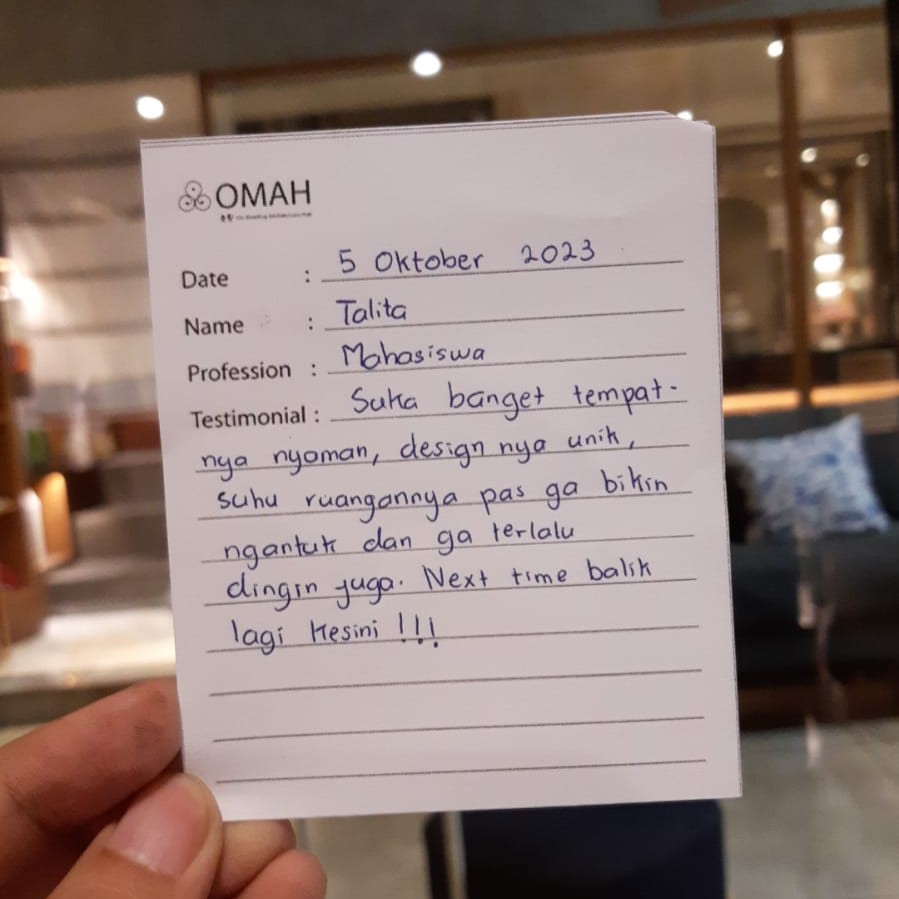 OMAH
Date : 5 Oktober 2023
Name : Talita
Profession : Mahasiswa
Testimonial : Suka banget tempat-
nya nyoman, design nya unik,
suhu ruangannya pas ga bikin
ngantuk dan ga terlalu
dingin juga. Next time balik
lagi kesini !!!